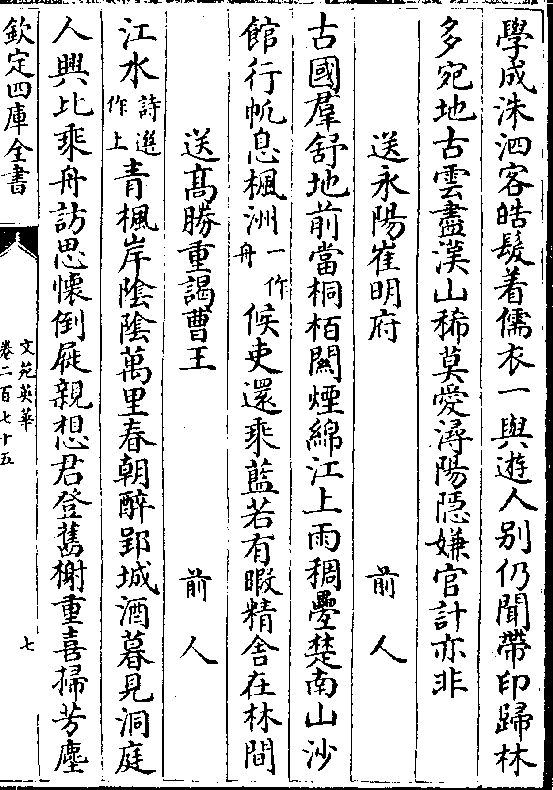 學成洙泗客皓髮着儒衣一與遊人别仍聞帶印歸林
多宛地古雲盡漢山稀莫愛潯陽隱嫌官計亦非
送永陽崔明府　前人
古國羣舒地前當桐栢闗煙綿江上雨稠疊楚南山沙
館行帆息楓洲一作舟候吏還乘藍若有暇精舍在林間
送髙勝重謁曹王　前人
江水詩選作上青楓岸陰陰萬里春朝醉郢城酒暮見洞庭
人興比乘舟訪思懷倒屣親想君登舊榭重喜掃芳塵
欽定四庫全書
文苑英華
卷二百七十五
七